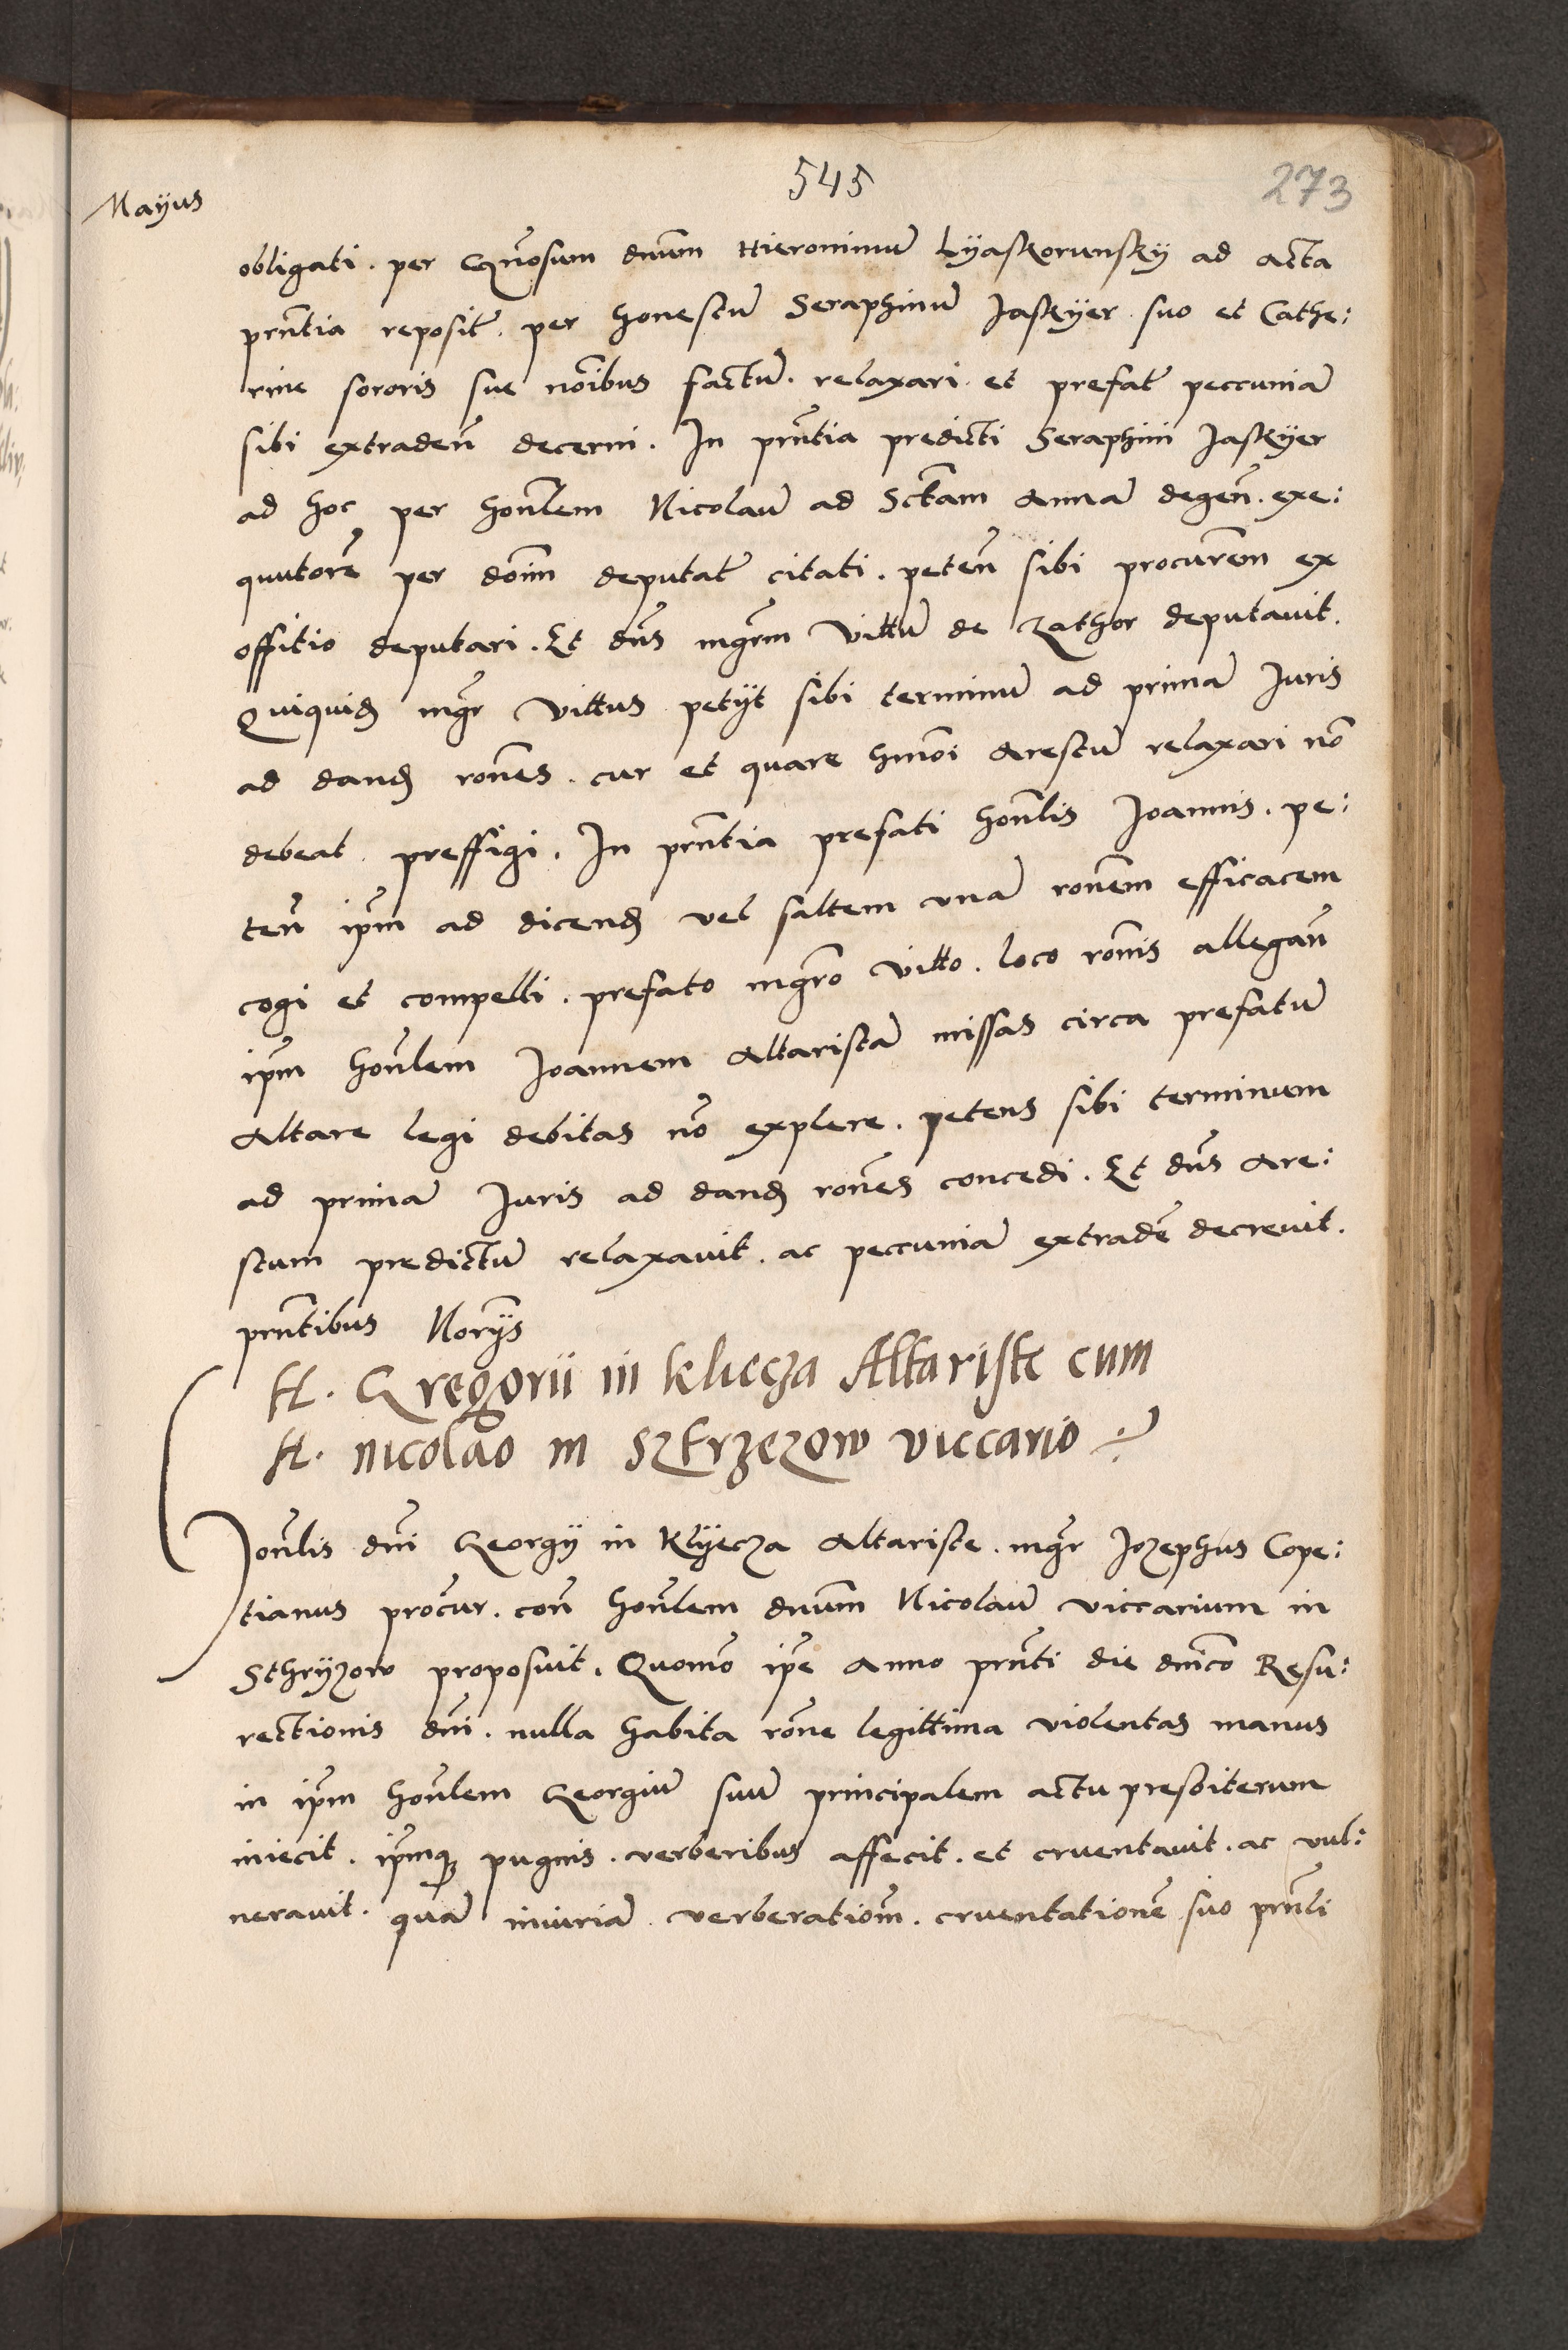 545
273
Mayus
obligati. per Gnōsum dnūm Hieronimū Lyaskorunsky ad acta
prn̄tia reposit̄. per honestū Seraphinū Jaskyer suo et Cathe:
rine sororis sue nōibus factū. relaxari et prefat̄ peccuniā
sibi extraden̄ decerni. In prn̄tia predicti Seraphini Jaskyer
ad hoc per honl̄em Nicolaū ad Sctam Annā degen̄. exe:
quutorē per doīm deputat̄ citati. peten̄ sibi procurēm ex
offitio deputari. Et dn̄s mgr̄m Vittū de Zathor deputavit.
Quiquid mgr̄ Vittus petyt sibi terminū ad primā Juris
ad dand rōnes. cur et quare hmōi Arestū relaxari nō
debeat preffigi. In prn̄tia prefati honl̄is Joannis. pe:
ten̄ ip̄m ad dicend vel saltem unā rōnem efficacem
cogi et compelli. prefato mgr̄o Vitto. loco rōnis allegan̄
ip̄m honl̄em Joannem Altaristā missas circa prefatū
Altare legi debitas nō explere. petens sibi terminum
ad primā Juris ad dand rōnes concedi. Et dn̄s Are:
stum predictū relaxavit. ac peccuniā extradē decrevit.
prn̄tibus Norys
H. Gregorii in Kliecza Altariste cum
H. Nicolao in Szkrzezow viccario
Honl̄is dn̄i Georgy in Klyecza Altariste. mgr̄ Jozephus Cope:
tianus prōcur. con̄ honl̄em dnūm Nicolaū viccarium in
Sthryzow proposuit. Quomō ip̄e Anno prn̄ti die dn̄ico Resu:
rectionis dn̄i. nulla habita rōne legittima violentas manus
in ip̄m honl̄em Georgiū suū principalem actu presbiterum
iniecit. ip̄mq pugnis. verberibus affecit. et cruentavit. ac vul:
neravit. quā iniuriā. verberatiōm. cruentationē suo prn̄li